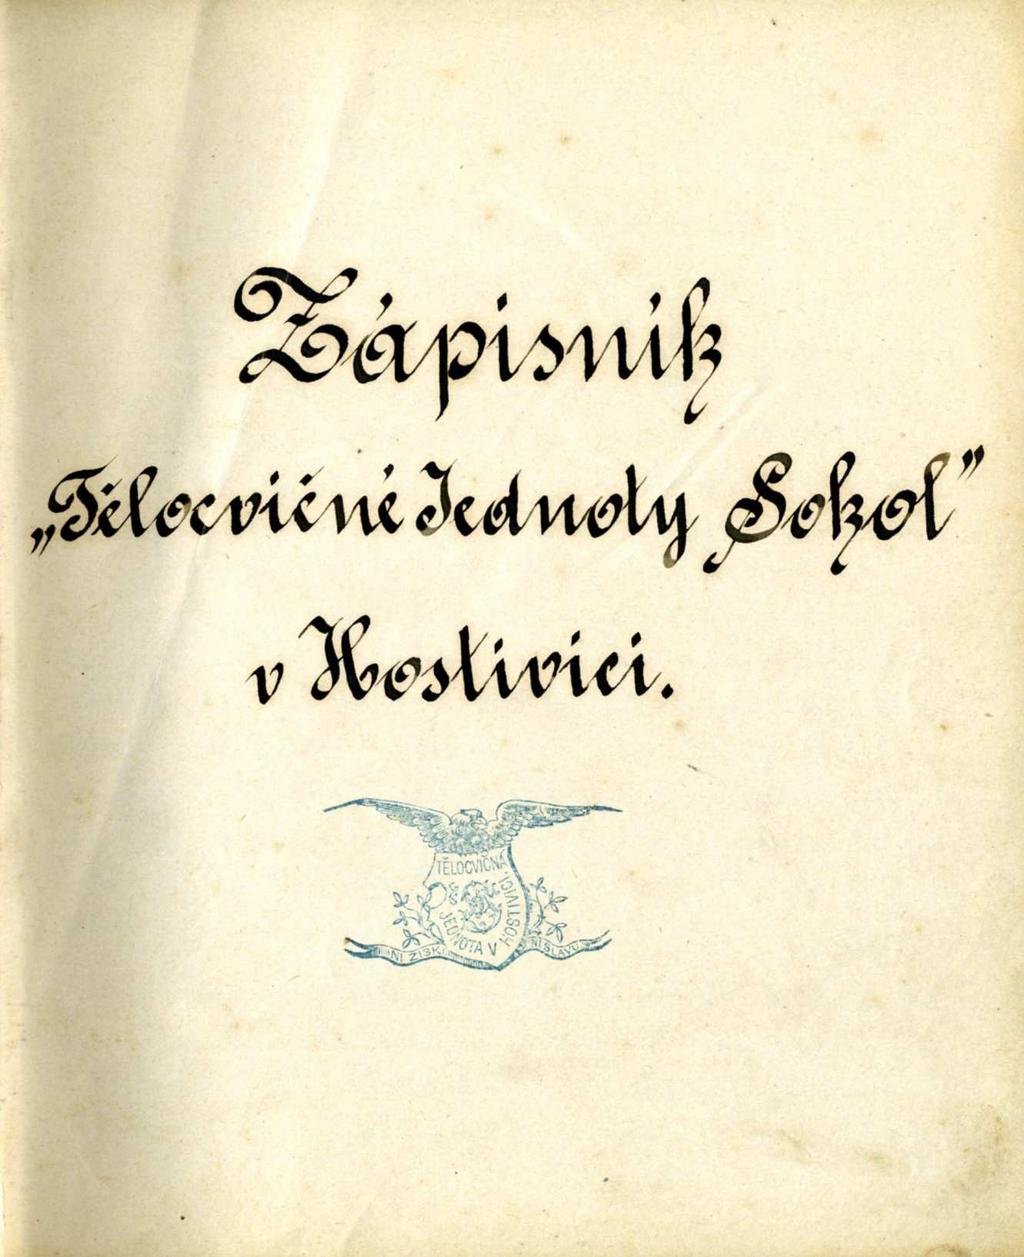 Zápisník
„Tělocvičné Jednoty Sokol"
v Hostivici.
TĚLOCVIČNÁ
JEDNOTA V HOSTIVICI
NI ZISK NI SLÁVU